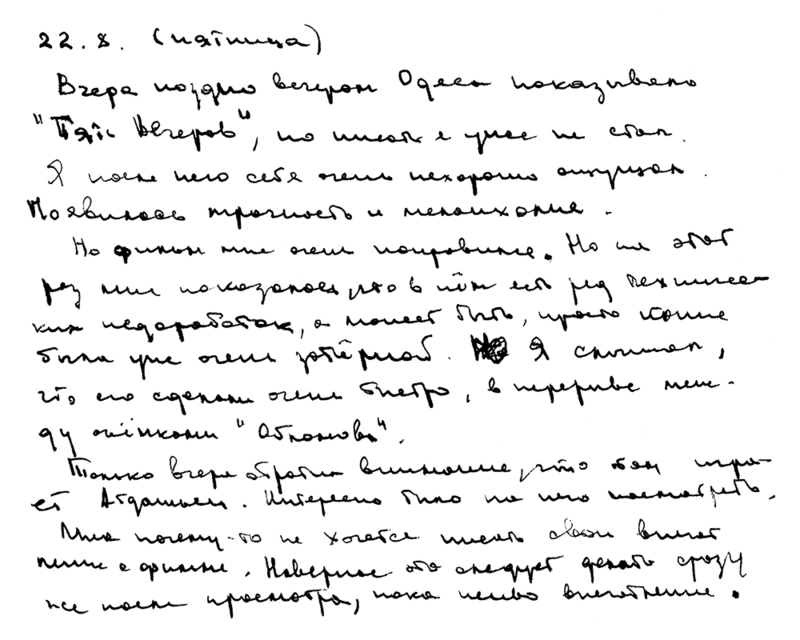 22.8. (пятница)
Вчера поздно вечером Одесса показывала
"Пять Вечеров", но писать я уже не стал.
Я после него себя очень нехорошо ощущал.
Появилась мрачность и меланхолия.
Но фильм мне очень понравился. Но на этот
раз мне показалось, что в нём есть ряд техничес-
ких недоработок, а может быть, просто копия
была уже очень затёртой. Я слышал,
что его сделали очень быстро, в перерыве меж-
ду съёмками "Обломова".
Только вчера обратил внимание, что там игра-
ет Адабашьян. Интересно было на него посмотреть.
Мне почему-то не хочется писать свои впечат
ления о фильме. Наверное это следует делать сразу
же после просмотра, пока живо впечатление.